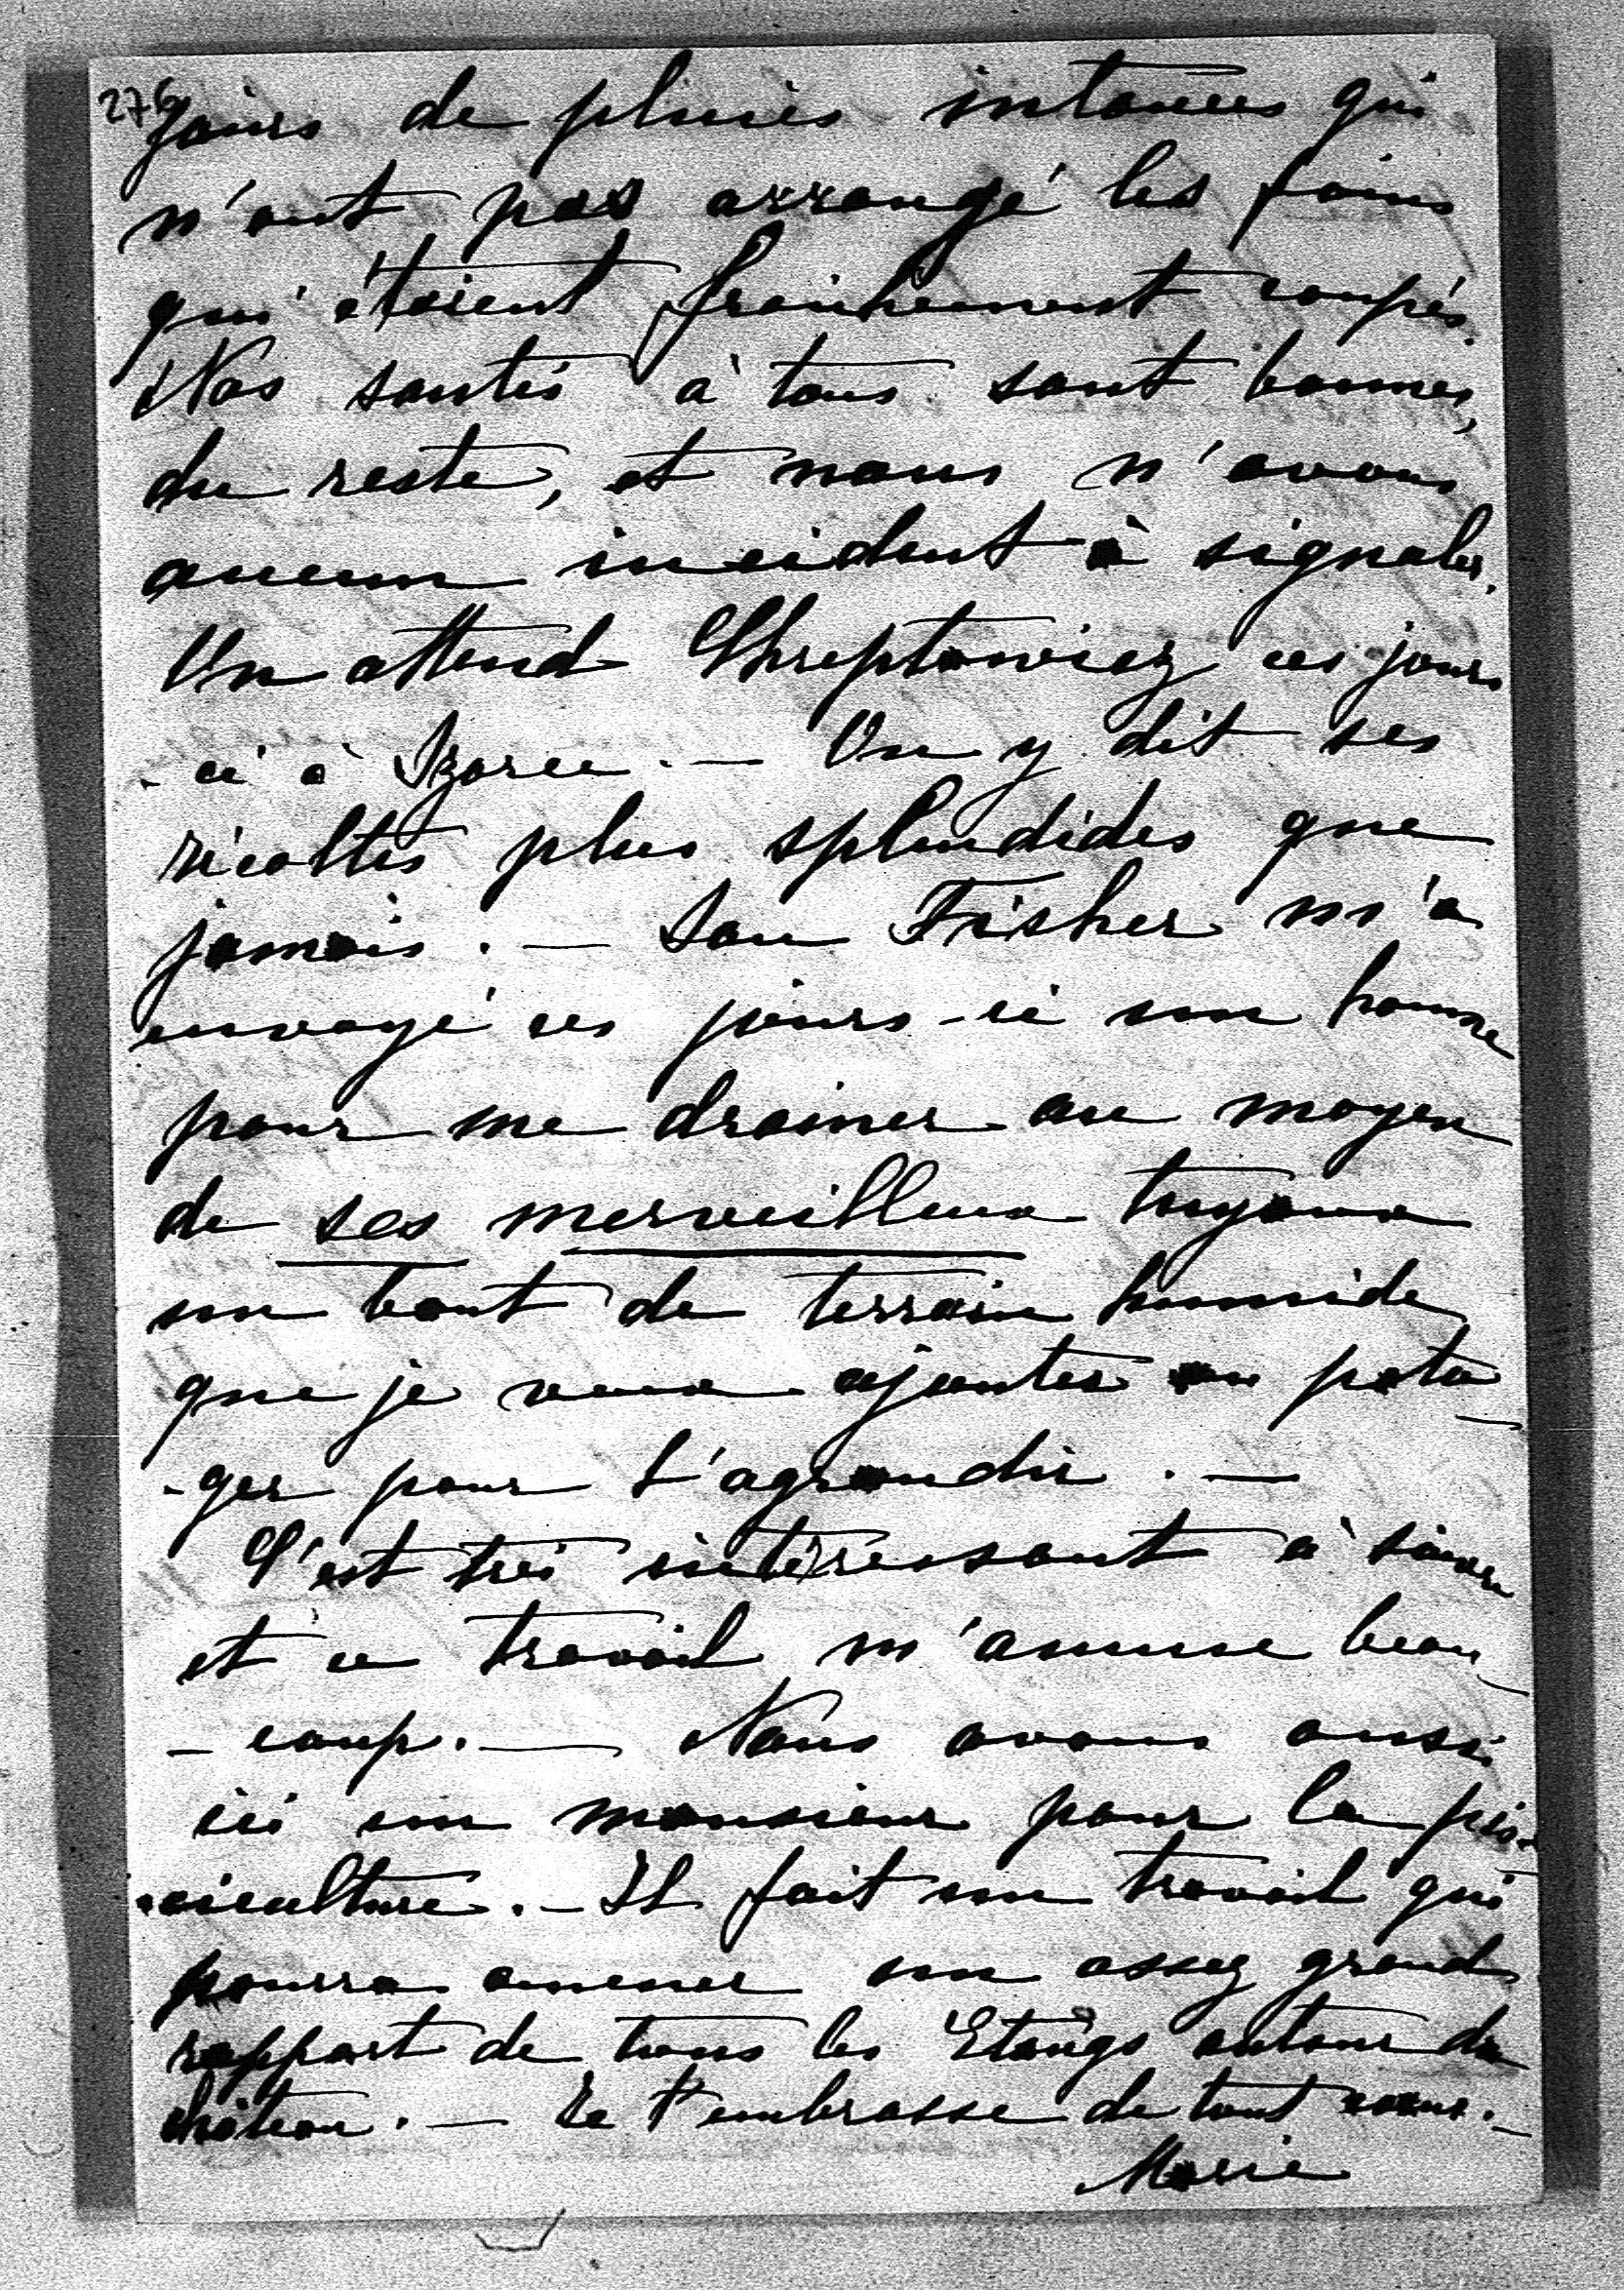 276
jours de pluies intenses qui
n'ont pas arrangé les foins
qui étaient fraîchement coupés.
Nos santés à tous sont bonnes,
du reste, et nous n'avons
aucun incident à signaler.
On attend Chreptowicz ces jours
-ci à Izorce. — On y dit ses
récoltes plus splendides que
jamais. — Son Fisher m'a
envoyé ces jours-ci un homme
pour me drainer au moyen
de ses merveilleux tuyaux
un bout de terrain humide
que je veux ajouter au pota
-ger pour l'agrandir. —
C'est très intéressant à suivre
et ce travail m'amuse beau
- coup. — Nous avons aussi
ici un monsieur pour la pis-
-ciculture. - Il fait un travail qui
pourra amener un assez grand
rapport de tous les Etangs autour du
château. — Je t'embrasse de tout coeur. —
Marie